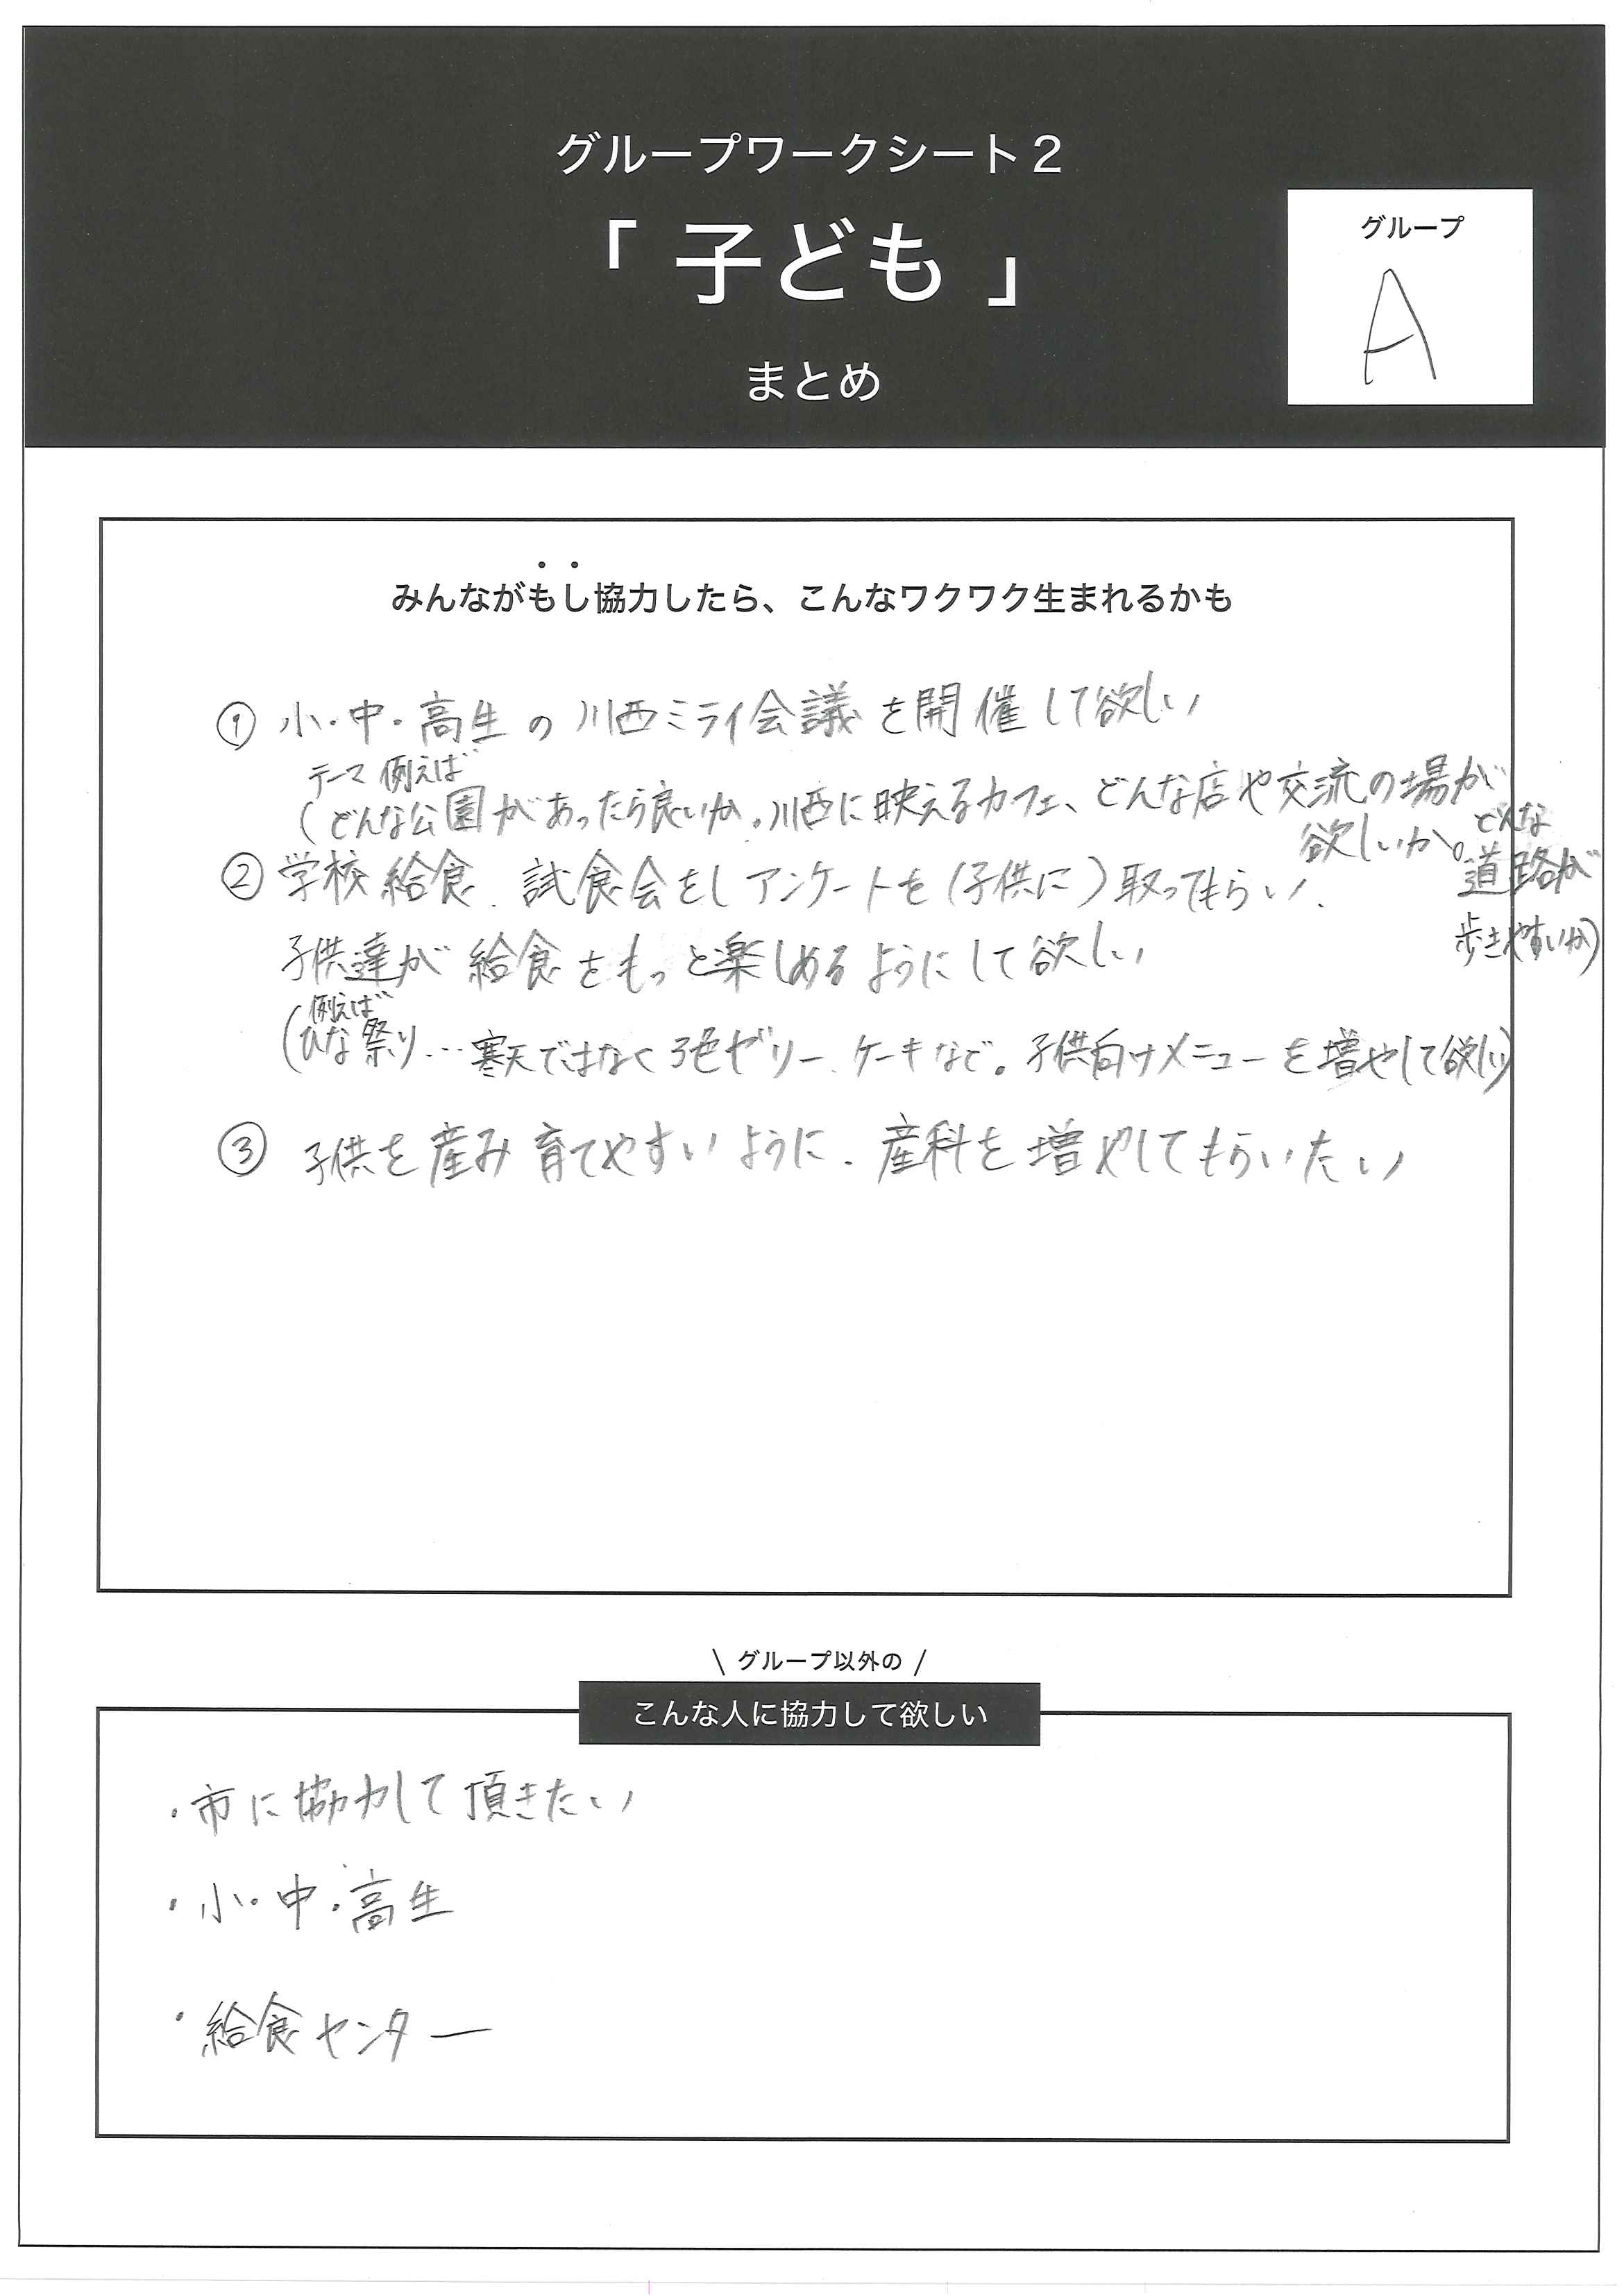 グループワークシート２
「 子ども 」
まとめ
グループ
A
みんながもし協力したら、こんなワクワク生まれるかも
① 小・中・高生の川西ミライ会議を開催して欲しい
テーマ 例えば
(どんな公園があったら良いか。川西に映えるカフェ、どんな店や交流の場が
欲しいか。どんな
道路が
歩きやすいか)
② 学校給食、試食会をしアンケートを(子供に)取ってもらい、
子供達が給食をもっと楽しめるようにして欲しい
例えば
(ひな祭り…寒天ではなく3色ゼリー、ケーキなど。子供向けメニューを増やして欲しい)
③ 子供を産み育てやすいように、産科を増やしてもらいたい
\ グループ以外の /
こんな人に協力して欲しい
・市に協力して頂きたい
・小・中・高生
・給食センター